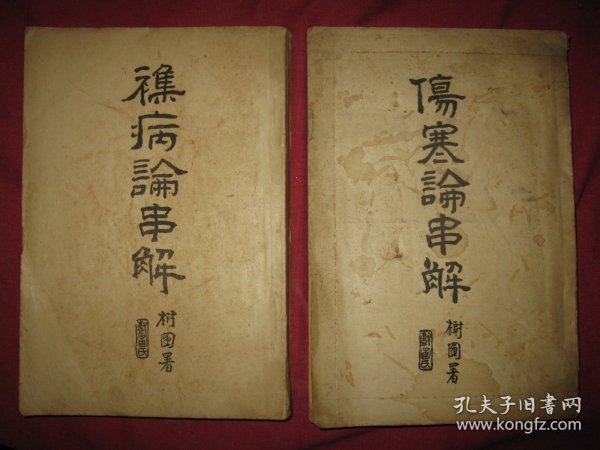 襍病論串解
樹園署
傷寒論串解
樹園署
孔夫子旧書网
www.kongfz.com